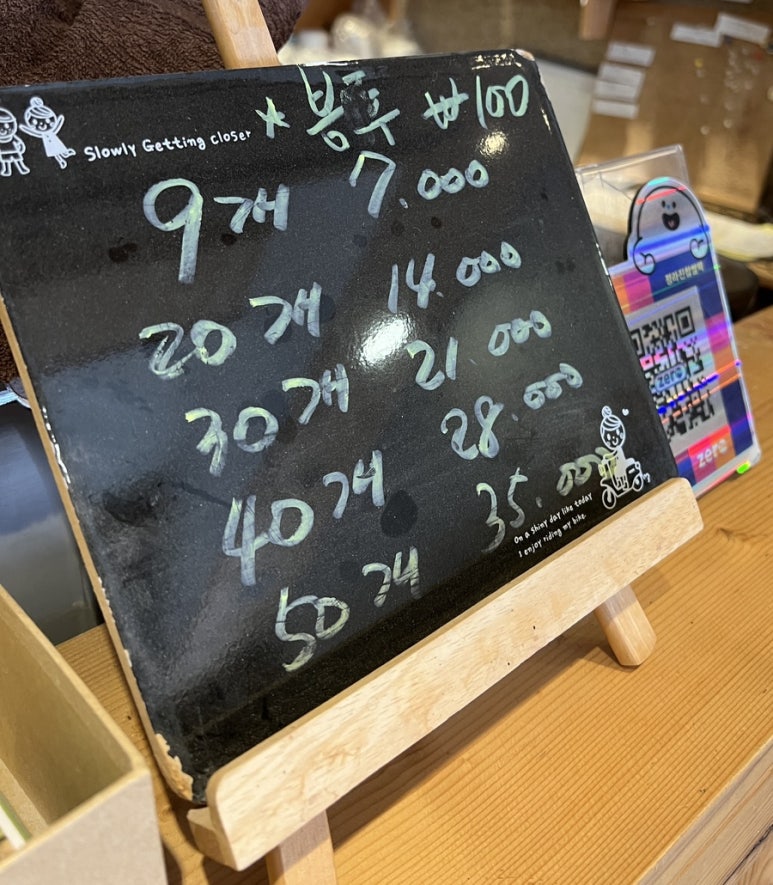 Slowly Getting closer
* 봉투 ₩100
9개 7.000
20개 14.000
30개 21.000
40개 28.000
50개 35.000
On a shiny day like today
I enjoy riding my bike.
zero
zero